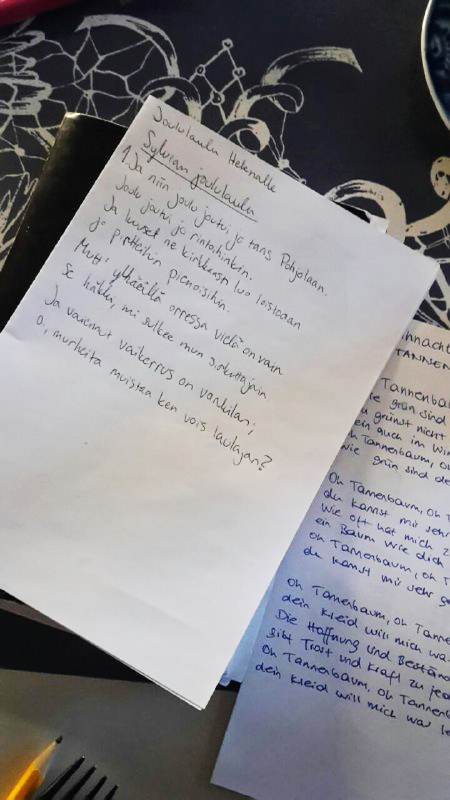 Joululaulu Helenalle
Sylvian joululaulu
1. Ja niin joulu joutui jo taas Pohjolaan.
Joulu joutui jo rintoihinkin.
Ja kuuset ne kirkkaasti luo loistoaan
jo pirtteihin pienoisihin.
Mutt' ylhäällä orressa vielä on vain
se häkki, mi sulkee mun sirkuttajain.
Ja vaiennut vaikerrus on vankilan;
o, murheita muistaa ken vois laulajan?
TANNEN
Tannenba
grün sind
grünst nicht
ein auch im Win
Oh Tannenbaum, o
wie grün sind de
Oh Tannenbaum, Oh T
du kannst mir sehr
Wie oft hat mich z
ein Baum wie dich
Oh Tannenbaum, oh T
du kannst mir sehr ge
Oh Tannenbaum, oh Tanne
dein Kleid will mich wa
Die Hoffnung und Bestän
gibt Trost und Kraft zu jed
Oh Tannenbaum, oh Tannenb
dein Kleid will mich was le